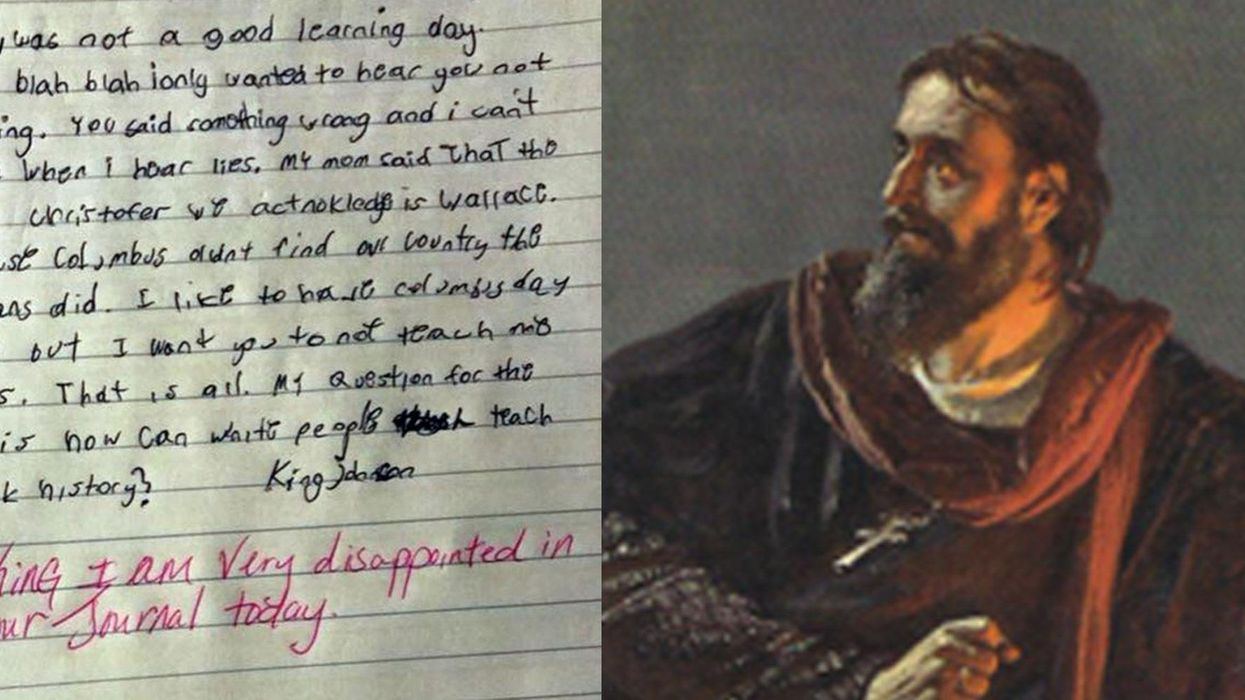 was not a good learning day.
blah blah ionly wanted to hear you not
ing. You said somothing wrong and i can't
when i hear lies. My mom said That the
christofer we actnokledje is Wallace.
Columbus didnt find our country the
did. I like to have columbus day
but I want you to not teach me
s. That is all. My question for the
is how can white people teach
k history? King Johnson
King I am Very disappointed in
ur Journal today.